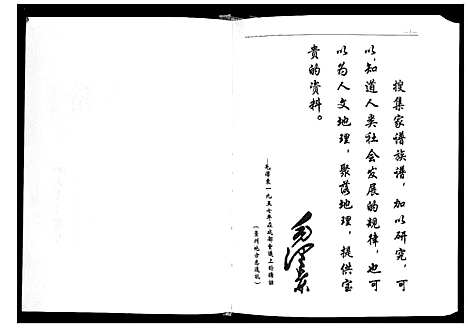 搜集家谱族谱，加以研究，可
以知道人类社会发展的规律，也可
以为人文地理，聚落地理，提供宝
贵的资料。
—毛泽东一九五七年在成都会议上的讲话
（贵州地方志通讯）
毛泽东